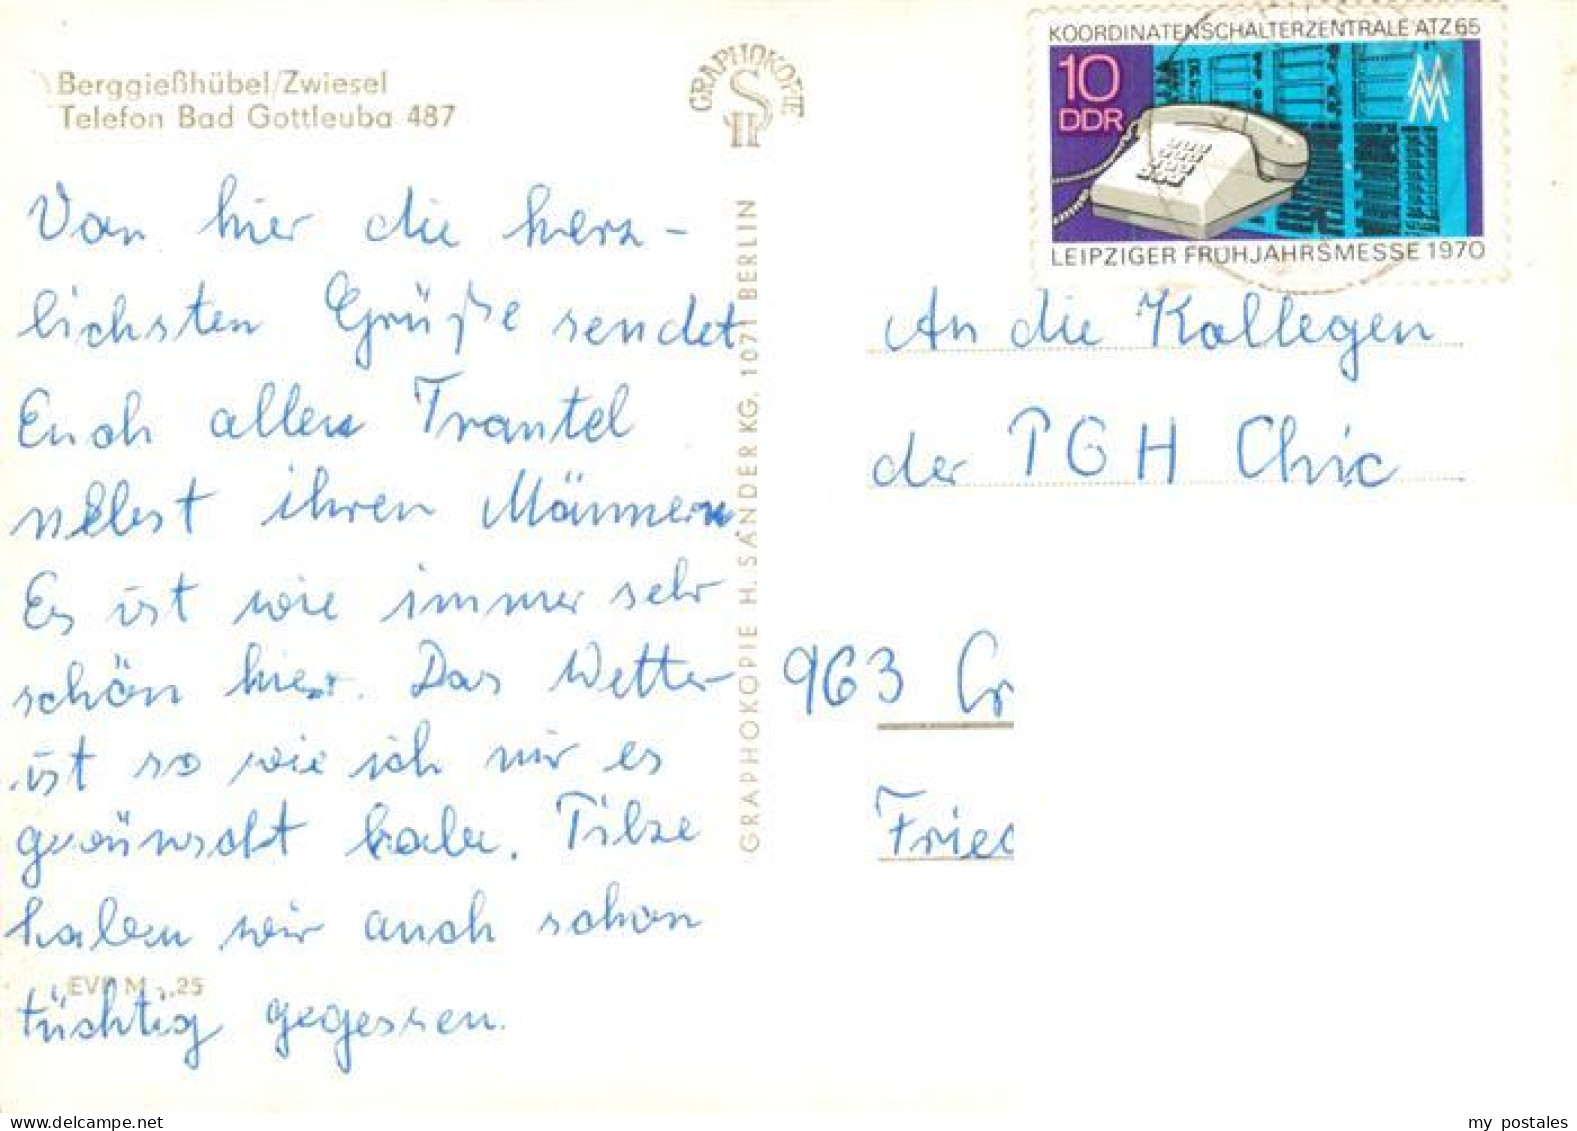 Berggießhübel/Zwiesel
Telefon Bad Gottleuba 487
GRAPHOKOPIE
H S
KOORDINATENSCHALTERZENTRALE ATZ 65
10
DDR
MM
LEIPZIGER FRÜHJAHRSMESSE 1970
Von hier die herz-
lichsten Grüße sendet
Euch allen Trantel
nebst ihren Männern
Es ist wie immer sehr
schön hier. Das Wetter
ist so wie ich mir es
gewünscht habe. Pilze
haben wir auch schon
tüchtig gegessen.
EVP M -,25
GRAPHOKOPIE H. SANDER KG, 1071 BERLIN
An die Kollegen
der PGH Chic
963 Cr
Fried
my postales